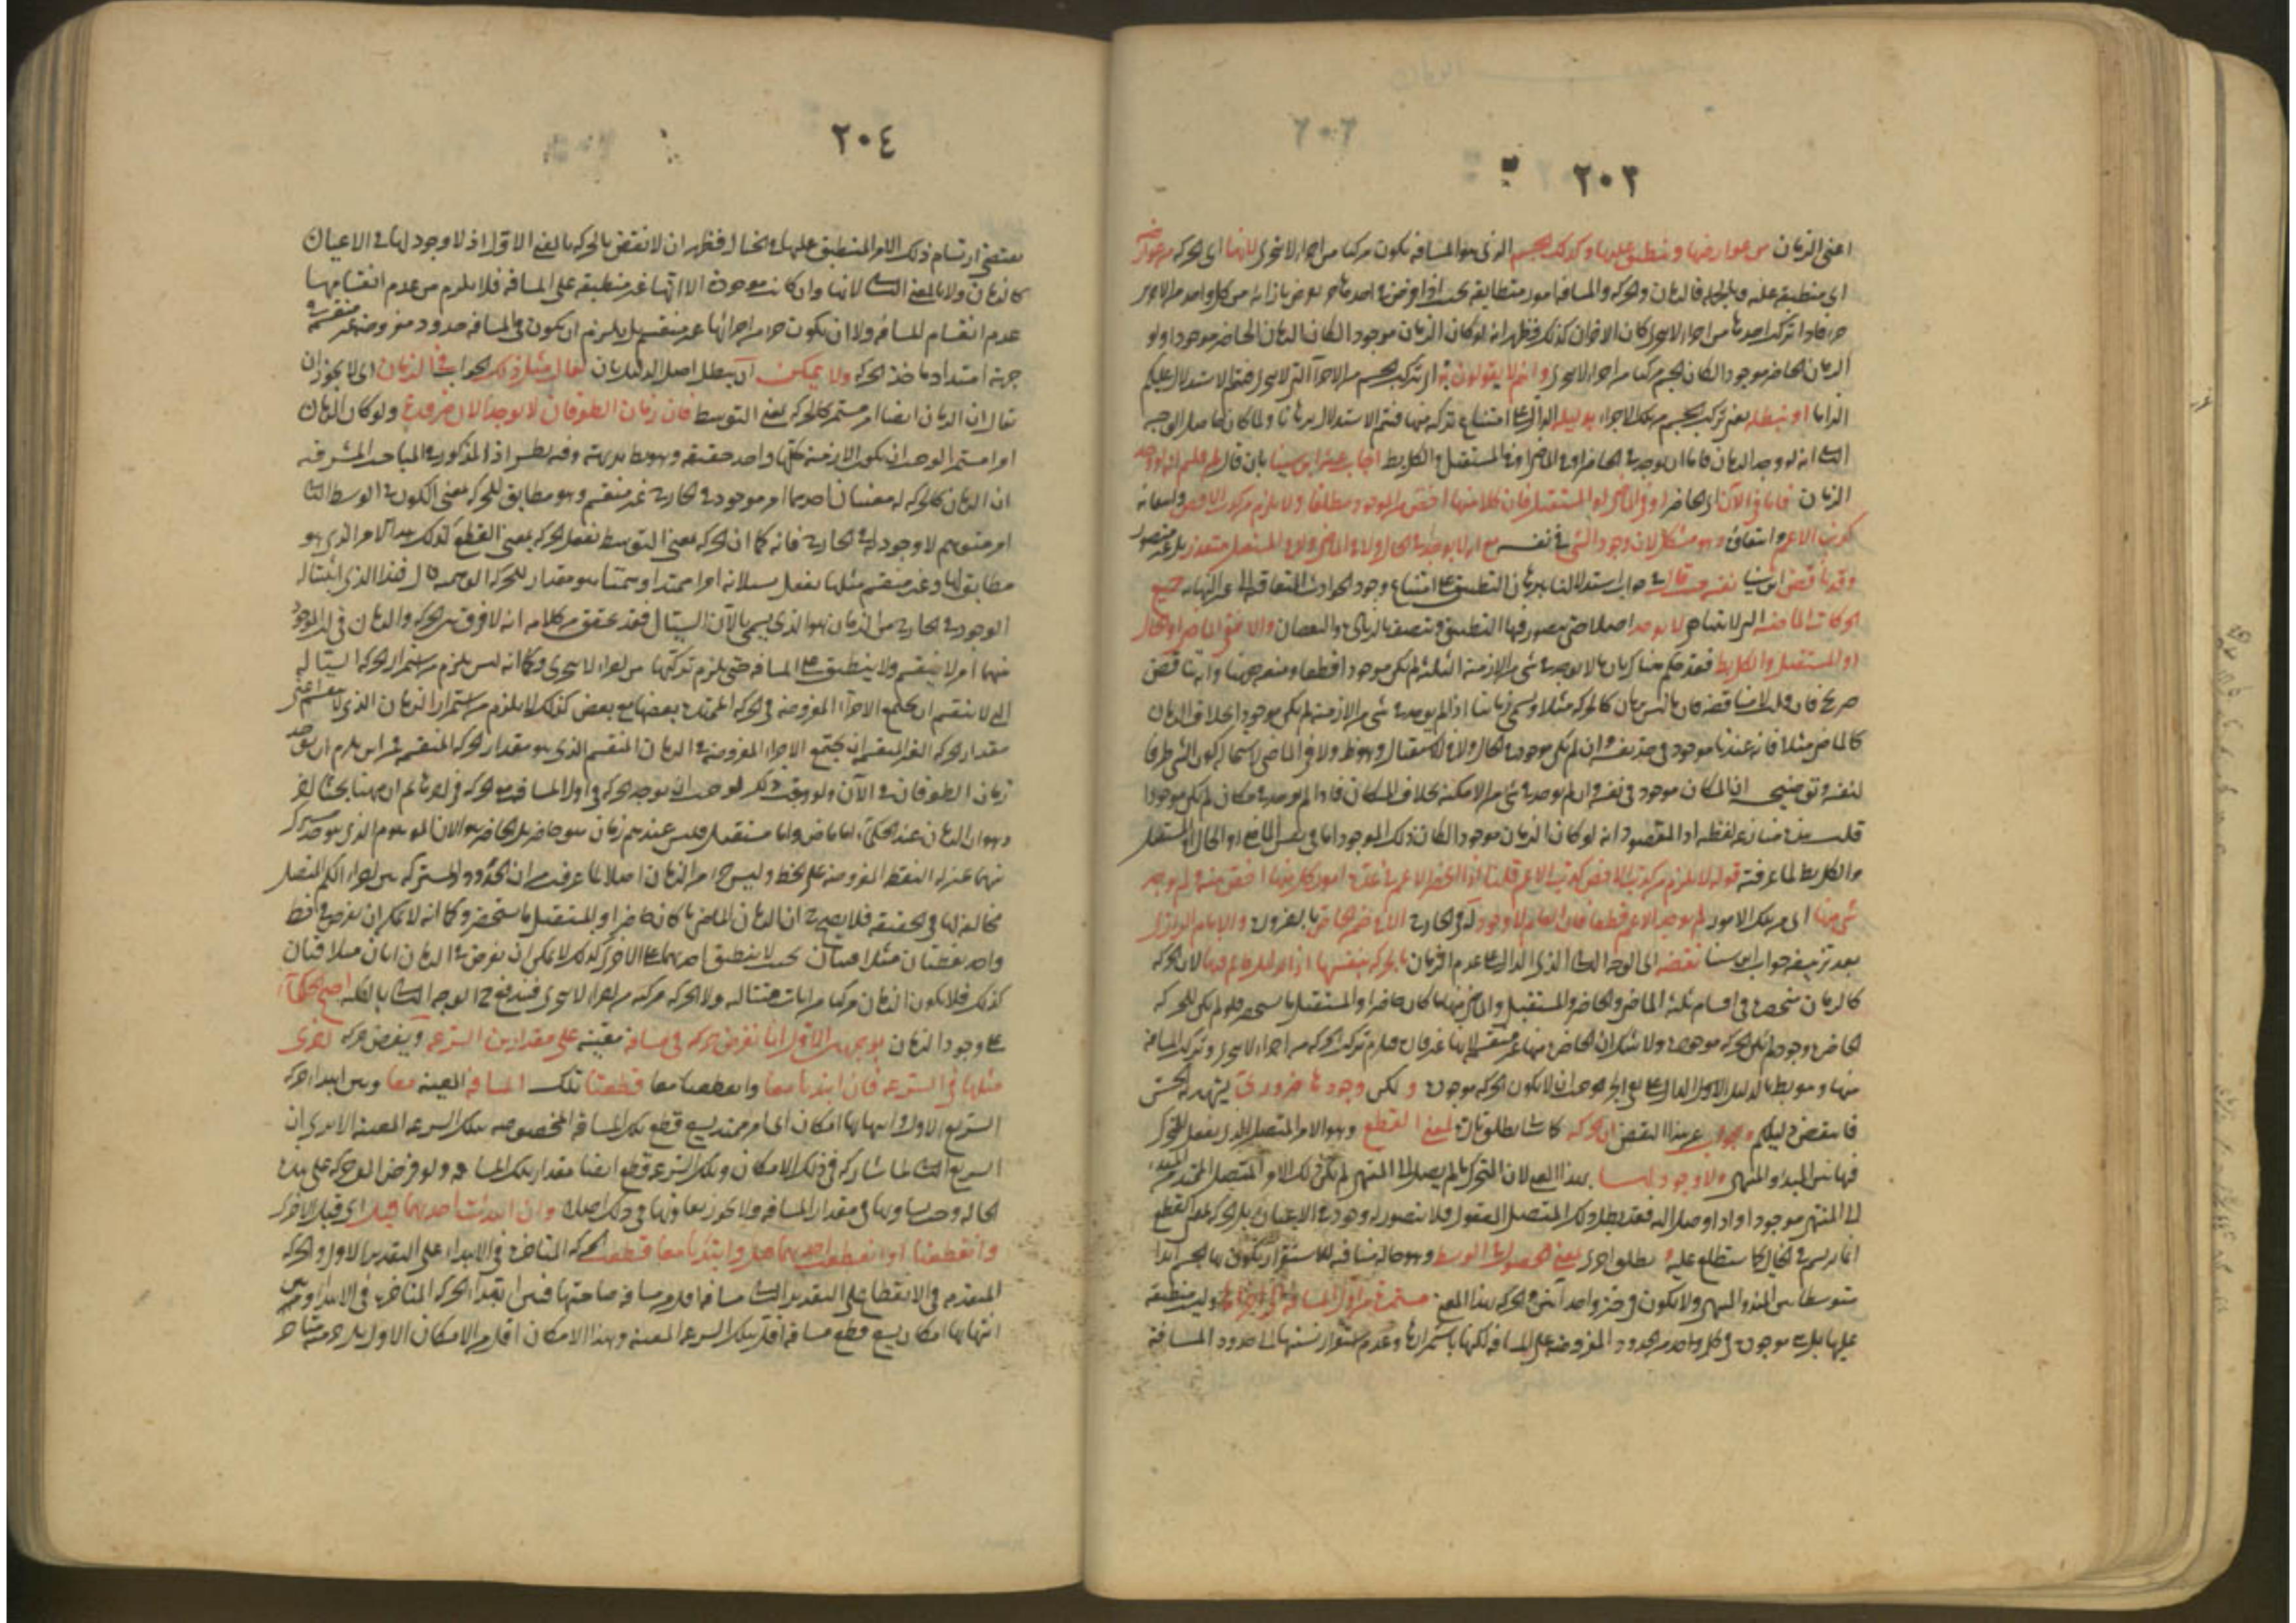 ٢٠٣
اعنى الزمان من عوارضها و منطبق عليها وكذلك الجسم الذى هو المسافة يكون مركبا من اجزاء لا تتجزى لانها اى الحركة من عوارضه
اى منطبقة عليه وبالجملة فالزمان والحركة والمسافة امور متطابقة بحيث اذا فرض فى احدها جزء يفرض بازائه من كل واحد من الاخرين
جزء فاذا تركب احدها من اجزاء لا تتجزى كان الاخران كذلك فظهر انه لو كان الزمان موجودا لكان الزمان الحاضر موجودا ولو
الزمان الحاضر موجودا لكان الجسم مركبا من اجزاء لا تتجزى وانتم لا تقولون به اى تركب الجسم من الاجزاء التى لا تتجزى فتم الاستدلال عليكم
الزاما او نبطله يعنى تركب الجسم من تلك الاجزاء بدليله الدال على امتناع تركبه منها فيتم الاستدلال برهانا ولما كان حاصل الوجه
الثانى انه لو وجد الزمان فاما ان يوجد فى الحاضر او فى الماضى او فى المستقبل والكل بط اجاب عنه ابن سينا بان قال لم قلتم انه لو وجد
الزمان فاما فى الآن اى الحاضر او فى الماضى او المستقبل فان كلا منها اخص من الموجود مطلقا ولا يلزم من كذب الاخص وانتفائه
كذب الاعم وانتفاؤه وهو مشكل لان وجود الشئ فى نفسه مع انه لا يوجد فى الحال ولا فى الماضى ولا فى المستقبل متعذر بل غير متصور
وقد ناقض ابن سينا نفسه حيث قال فى جواب استدلالنا ببرهان التطبيق على امتناع وجود الحوادث المتعاقبة الى غير النهاية جميع
الحركات الماضية التى لا تتناهى لا توجد اصلا حتى يتصور فيها التطبيق وتتصف بالزيادة والنقصان والا ففى الماضى او الحال
او المستقبل والكل بط فقد حكم هناك بان ما لا يوجد فى شئ من الازمنة الثلثة لم يكن موجودا قطعا ومنعه ههنا وانه تناقض
صريح فان قلت لا مناقضة فان ما ليس بزمان كالحركة مثلا ويسمى زمانيا اذا لم يوجد فى شئ من الازمنة لم يكن موجودا بخلاف الزمان
كالماضى مثلا فانه عندنا موجود فى حد نفسه وان لم يكن موجودا فى الحال ولا فى الاستقبال وهو ظ ولا فى الماضى لاستحالة كون الشئ ظرفا
لنفسه وتوضيحه ان المكان موجود فى نفسه وان لم يوجد فى شئ من الامكنة بخلاف المكانى فاذا لم يوجد فى مكان لم يكن موجودا
قلت هذه منازعة لفظية اذ المقصود انه لو كان الزمان موجودا لكان ذلك الموجود اما فى نفس الماضى او الحال او المستقبل
والكل بط لما عرفته قوله لا يلزم من كذب الاخص كذب الاعم قلنا اذا انحصر الاعم فى عدة امور كل منها اخص منه ولم يوجد
شئ منها اى من تلك الامور لم يوجد الاعم قطعا فان العام لا وجود له فى الخارج الا فى ضمن الخاص بالضرورة والامام الرازى
بعد تزييفه جواب ابن سينا نقضه اى الوجه الثانى الذى الدال على عدم الزمان بالحركة بنفسها اذ الدليل قائم فيها لان الحركة
كالزمان منحصرة فى اقسام ثلثة الماضى والحاضر والمستقبل والماضى منها ما كان حاضرا والمستقبل ما سيحضر فلو لم يكن للحركة
الحاضرة وجود لم يكن الحركة موجودة ولا شك ان الحاضرة منها غير منقسمة لانها غير قارة فيلزم تركب الحركة من اجزاء لا تتجزى وتركب المسافة
منها وهو بط بالدليل الاول الدال على نفى الجزء فوجب ان لا يكون الحركة موجودة ولكن وجودها ضرورى يشهد به الحس
فانتقض دليلكم والجواب عن هذا النقض ان الحركة كما سيأتى يطلق تارة لمعنى القطع وهو الامر المتصل الذى يعقل للمتحرك
فيما بين المبدأ والمنتهى ولا وجود لها بهذا المعنى لان المتحرك ما لم يصل الى المنتهى لم يكن ذلك الامر المتصل الممتد من المبدء
الى المنتهى موجودا واذا وصل اليه فقد بطل ذلك المتصل المعقول فلا يتصور له وجود فى الاعيان بل الحركة بمعنى القطع
انما يرتسم فى الخيال كما ستطلع عليه ويطلق اخرى بمعنى الحصول فى الوسط وهو حالة منافية للاستقرار يكون بها الجسم ابدا
متوسطا بين المبدأ والمنتهى ولا يكون فى حيز واحد آنين والحركة بهذا المعنى مستمرة من اول المسافة الى آخرها وليست منطبقة
عليها بل هى موجودة فى كل واحد من الحدود المفروضة على المسافة لكنها باستمرارها وعدم استقرار نسبتها الى حدود المسافة
٢٠٤
يقتضى ارتسام ذلك الامر المنطبق عليها فى الخيال فظهر ان لا نقض بالحركة بالمعنى الاول اذ لا وجود لها فى الاعيان
كالزمان ولا بالمعنى الثانى لانها وان كانت موجودة الا انها غير منطبقة على المسافة فلا يلزم من عدم انقسامها
عدم انقسام المسافة ولا ان يكون جزء من اجزائها غير منقسم بل يلزم ان يكون فى المسافة حدود مفروضة غير منقسمة فى
جهة امتداد مأخذ الحركة ولا يمكن ان يبطل اصل الدليل بان يقال مثل ذلك الجواب فى الزمان اى لا يجوز ان
يقال ان الزمان ايضا امر مستمر كالحركة بمعنى التوسط فان زمان الطوفان لا يوجد الآن ضرورة ولو كان الزمان
امرا مستمرا لوجب ان يكون الازمنة كلها واحدا حقيقة وهو بط بديهة وفيه نظر اذ المذكور فى المباحث المشرقية
ان الزمان كالحركة له معنيان احدهما امر موجود فى الخارج غير منقسم وهو مطابق للحركة بمعنى الكون فى الوسط الثانى
امر متوهم لا وجود له فى الخارج فانه كما ان الحركة بمعنى التوسط تفعل الحركة بمعنى القطع كذلك هذا الامر الذى هو
مطابق لها وغير منقسم مثلها يفعل بسيلانه امرا ممتدا وهميا هو مقدار للحركة الوهمية قال فهذا الذى اثبتناه
الوجود فى الخارج من الزمان هو الذى يسمى بالآن السيال فقد تحقق من كلامه انه لا فرق بين الحركة والزمان فى ان الموجود
منهما امر لا ينقسم ولا ينطبق على المسافة حتى يلزم تركبها من اجزاء لا تتجزى وكما انه ليس يلزم من استمرار الحركة السيالة
التى لا تنقسم ان يجتمع الاجزاء المفروضة فى الحركة الممتدة بعضها مع بعض كذلك لا يلزم من استمرار الزمان الذى لا ينقسم اعنى
مقدار الحركة الغير المنقسمة ان يجتمع الاجزاء المفروضة فى الزمان المنقسم الذى هو مقدار الحركة المنقسمة فمن اين يلزم ان يوجد
زمان الطوفان فى الآن ولو وجب ذلك لوجب ان يوجد الحركة فى اول المسافة مع الحركة فى اخرها ثم ان ههنا بحثا اخر
وهو ان الزمان عند الحكماء اما ماض واما مستقبل فليس عندهم زمان هو حاضر بل الحاضر هو الآن الموهوم الذى هو حد مشترك
بينهما بمنزلة النقطة المفروضة على الخط وليس جزءا من الزمان اصلا لما عرفت من ان الحدود المشتركة بين اجزاء الكم المتصل
مخالفة لها فى الحقيقة فلا يصح ان الزمان الماضى ما كان حاضرا والمستقبل ما سيحضر وكما انه لا يمكن ان يفرض فى خط
واحد نقطتان متلاقيتان بحيث لا ينطبق احدهما على الاخرى كذلك لا يمكن ان يفرض فى الزمان آنان متلاقيان
كذلك فلا يكون الزمان مركبا من آنات متتالية ولا الحركة مركبة من اجزاء لا تتجزى فيندفع ح الوجه الثانى بالكلية احتج الحكماء
على وجود الزمان بوجهين الاول انا نفرض حركة فى مسافة معينة على مقدار من السرعة ونفرض حركة اخرى
مثلها فى السرعة فان ابتدأتا معا وانقطعتا معا قطعتا تلك المسافة المعينة معا وبين ابتداء حركة
السريع الاول وانتهائها امكان اى امر ممتد يسع قطع تلك المسافة المخصوصة بتلك السرعة المعينة الا يرى ان
السريع الثانى لما شاركه فى ذلك الامكان وتلك السرعة قطع ايضا مقدار تلك المسافة ولو فرض الف حركة على هذه
الحالة وجب تساويها فى مقدار المسافة ولا يجوز تفاوتها فى ذلك اصلا وان ابتدأت احديهما قبل اى قبل الاخرى
وانقطعتا او انقطعت احديهما قبل وابتدأتا معا قطعت الحركة المتأخرة فى الابتداء على التقدير الاول والحركة
المتقدمة فى الانقطاع على التقدير الثانى مسافة اقل من مسافة صاحبتها فبين ابتداء الحركة المتأخرة فى الابتداء وبين
انتهائها امكان يسع قطع مسافة اقل بتلك السرعة المعينة وهذا الامكان اقل من الامكان الاول بل جزء منه متأخر